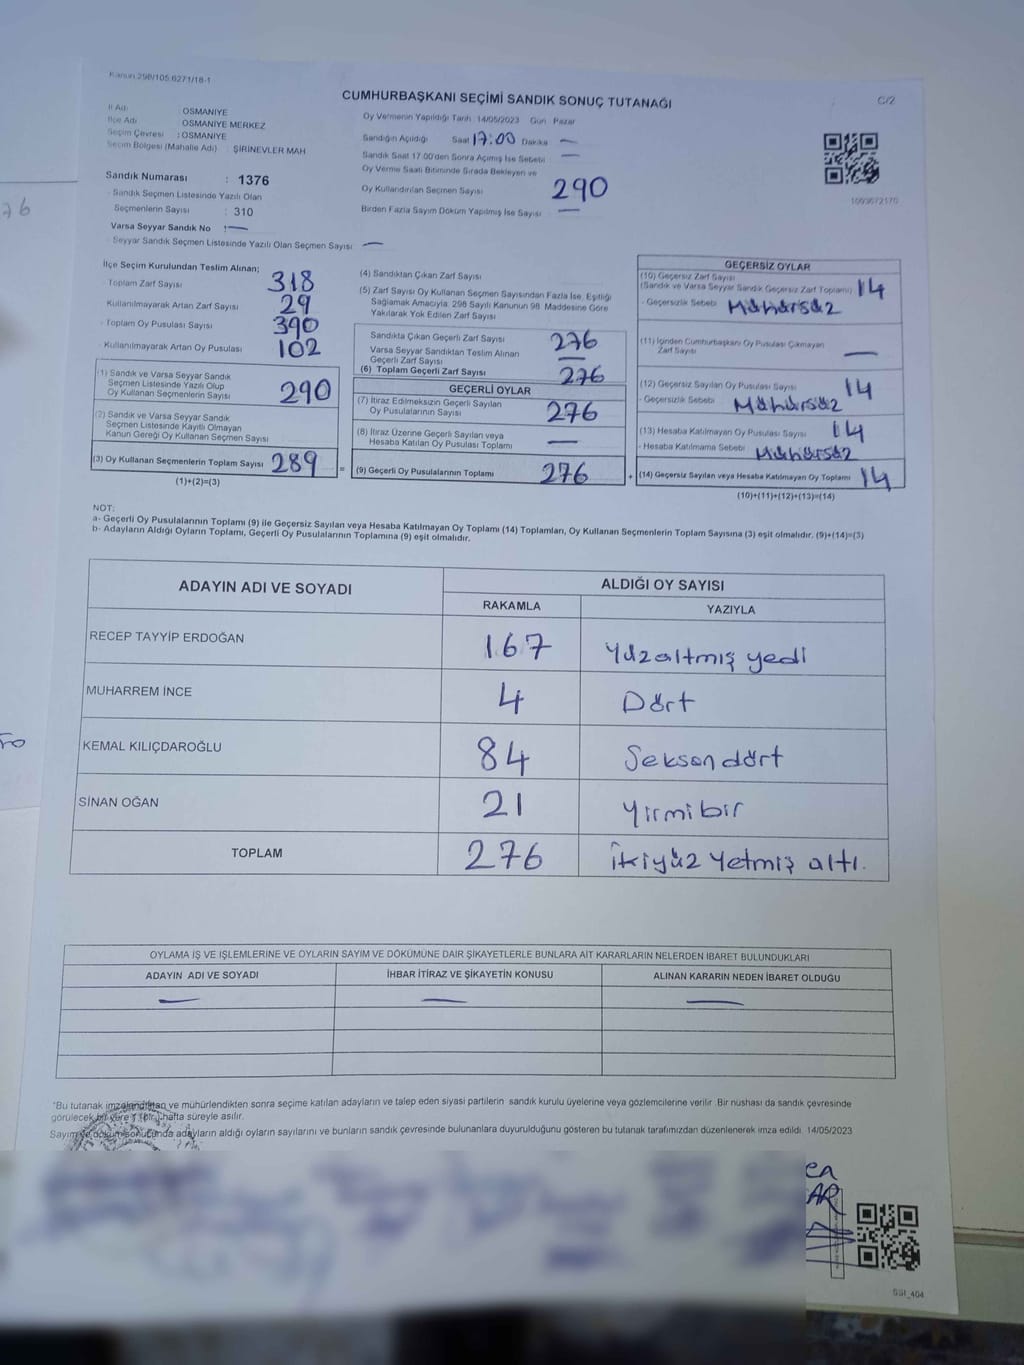 Kanun 298/105 6271/18-1
C/2
CUMHURBAŞKANI SEÇİMİ SANDIK SONUÇ TUTANAĞI
İl Adı OSMANİYE
İlçe Adı OSMANİYE MERKEZ
Seçim Çevresi : OSMANİYE
Seçim Bölgesi (Mahalle Adı) : ŞİRİNEVLER MAH
Sandık Numarası : 1376
- Sandık Seçmen Listesinde Yazılı Olan
Seçmenlerin Sayısı : 310
Varsa Seyyar Sandık No : —
- Seyyar Sandık Seçmen Listesinde Yazılı Olan Seçmen Sayısı —
Oy Vermenin Yapıldığı Tarih: 14/05/2023 Gün Pazar
Sandığın Açıldığı Saat 17:00 Dakika —
Sandık Saat 17.00'den Sonra Açılmış İse Sebebi —
Oy Verme Saati Bitiminde Sırada Bekleyen ve
Oy Kullandırılan Seçmen Sayısı 290
Birden Fazla Sayım Döküm Yapılmış İse Sayısı —
1003672170
İlçe Seçim Kurulundan Teslim Alınan;
- Toplam Zarf Sayısı 318
Kullanılmayarak Artan Zarf Sayısı 29
- Toplam Oy Pusulası Sayısı 390
- Kullanılmayarak Artan Oy Pusulası 102
(1) Sandık ve Varsa Seyyar Sandık
Seçmen Listesinde Yazılı Olup
Oy Kullanan Seçmenlerin Sayısı 290
(2) Sandık ve Varsa Seyyar Sandık
Seçmen Listesinde Kayıtlı Olmayan
Kanun Gereği Oy Kullanan Seçmen Sayısı
(3) Oy Kullanan Seçmenlerin Toplam Sayısı 289 =
(1)+(2)=(3)
(4) Sandıktan Çıkan Zarf Sayısı
(5) Zarf Sayısı Oy Kullanan Seçmen Sayısından Fazla İse, Eşitliği
Sağlamak Amacıyla; 298 Sayılı Kanunun 98. Maddesine Göre
Yakılarak Yok Edilen Zarf Sayısı
Sandıkta Çıkan Geçerli Zarf Sayısı 276
Varsa Seyyar Sandıktan Teslim Alınan
Geçerli Zarf Sayısı —
(6) Toplam Geçerli Zarf Sayısı 276
GEÇERLİ OYLAR
(7) İtiraz Edilmeksizin Geçerli Sayılan
Oy Pusulalarının Sayısı 276
(8) İtiraz Üzerine Geçerli Sayılan veya
Hesaba Katılan Oy Pusulası Toplamı —
(9) Geçerli Oy Pusulalarının Toplamı 276 +
GEÇERSİZ OYLAR
(10) Geçersiz Zarf Sayısı
(Sandık ve Varsa Seyyar Sandık Geçersiz Zarf Toplamı) 14
- Geçersizlik Sebebi Mühürsüz
(11) İçinden Cumhurbaşkanı Oy Pusulası Çıkmayan
Zarf Sayısı —
(12) Geçersiz Sayılan Oy Pusulası Sayısı 14
- Geçersizlik Sebebi Mühürsüz
(13) Hesaba Katılmayan Oy Pusulası Sayısı 14
- Hesaba Katılmama Sebebi Mühürsüz
(14) Geçersiz Sayılan veya Hesaba Katılmayan Oy Toplamı 14
(10)+(11)+(12)+(13)=(14)
NOT:
a- Geçerli Oy Pusulalarının Toplamı (9) ile Geçersiz Sayılan veya Hesaba Katılmayan Oy Toplamı (14) Toplamları, Oy Kullanan Seçmenlerin Toplam Sayısına (3) eşit olmalıdır. (9)+(14)=(3)
b- Adayların Aldığı Oyların Toplamı, Geçerli Oy Pusulalarının Toplamına (9) eşit olmalıdır.
ADAYIN ADI VE SOYADI ALDIĞI OY SAYISI
RAKAMLA YAZIYLA
RECEP TAYYİP ERDOĞAN 167 Yüzaltmış yedi
MUHARREM İNCE 4 Dört
KEMAL KILIÇDAROĞLU 84 Seksendört
SİNAN OĞAN 21 Yirmibir
TOPLAM 276 İkiyüz Yetmiş altı.
OYLAMA İŞ VE İŞLEMLERİNE VE OYLARIN SAYIM VE DÖKÜMÜNE DAİR ŞİKAYETLERLE BUNLARA AİT KARARLARIN NELERDEN İBARET BULUNDUKLARI
ADAYIN ADI VE SOYADI İHBAR İTİRAZ VE ŞİKAYETİN KONUSU ALINAN KARARIN NEDEN İBARET OLDUĞU
— — —
"Bu tutanak imzalandıktan ve mühürlendikten sonra seçime katılan adayların ve talep eden siyasi partilerin sandık kurulu üyelerine veya gözlemcilerine verilir. Bir nüshası da sandık çevresinde
görülecek bir yere 1 (bir) hafta süreyle asılır.
Sayım ve döküm sonucunda adayların aldığı oyların sayılarını ve bunların sandık çevresinde bulunanlara duyurulduğunu gösteren bu tutanak tarafımızdan düzenlenerek imza edildi. 14/05/2023
SSI_404